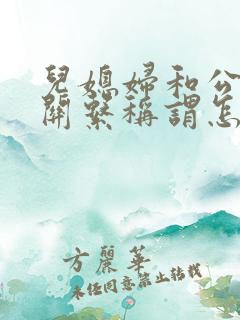 兒媳婦和公
關系稱謂怎
方麗華
未任同意禁止转载